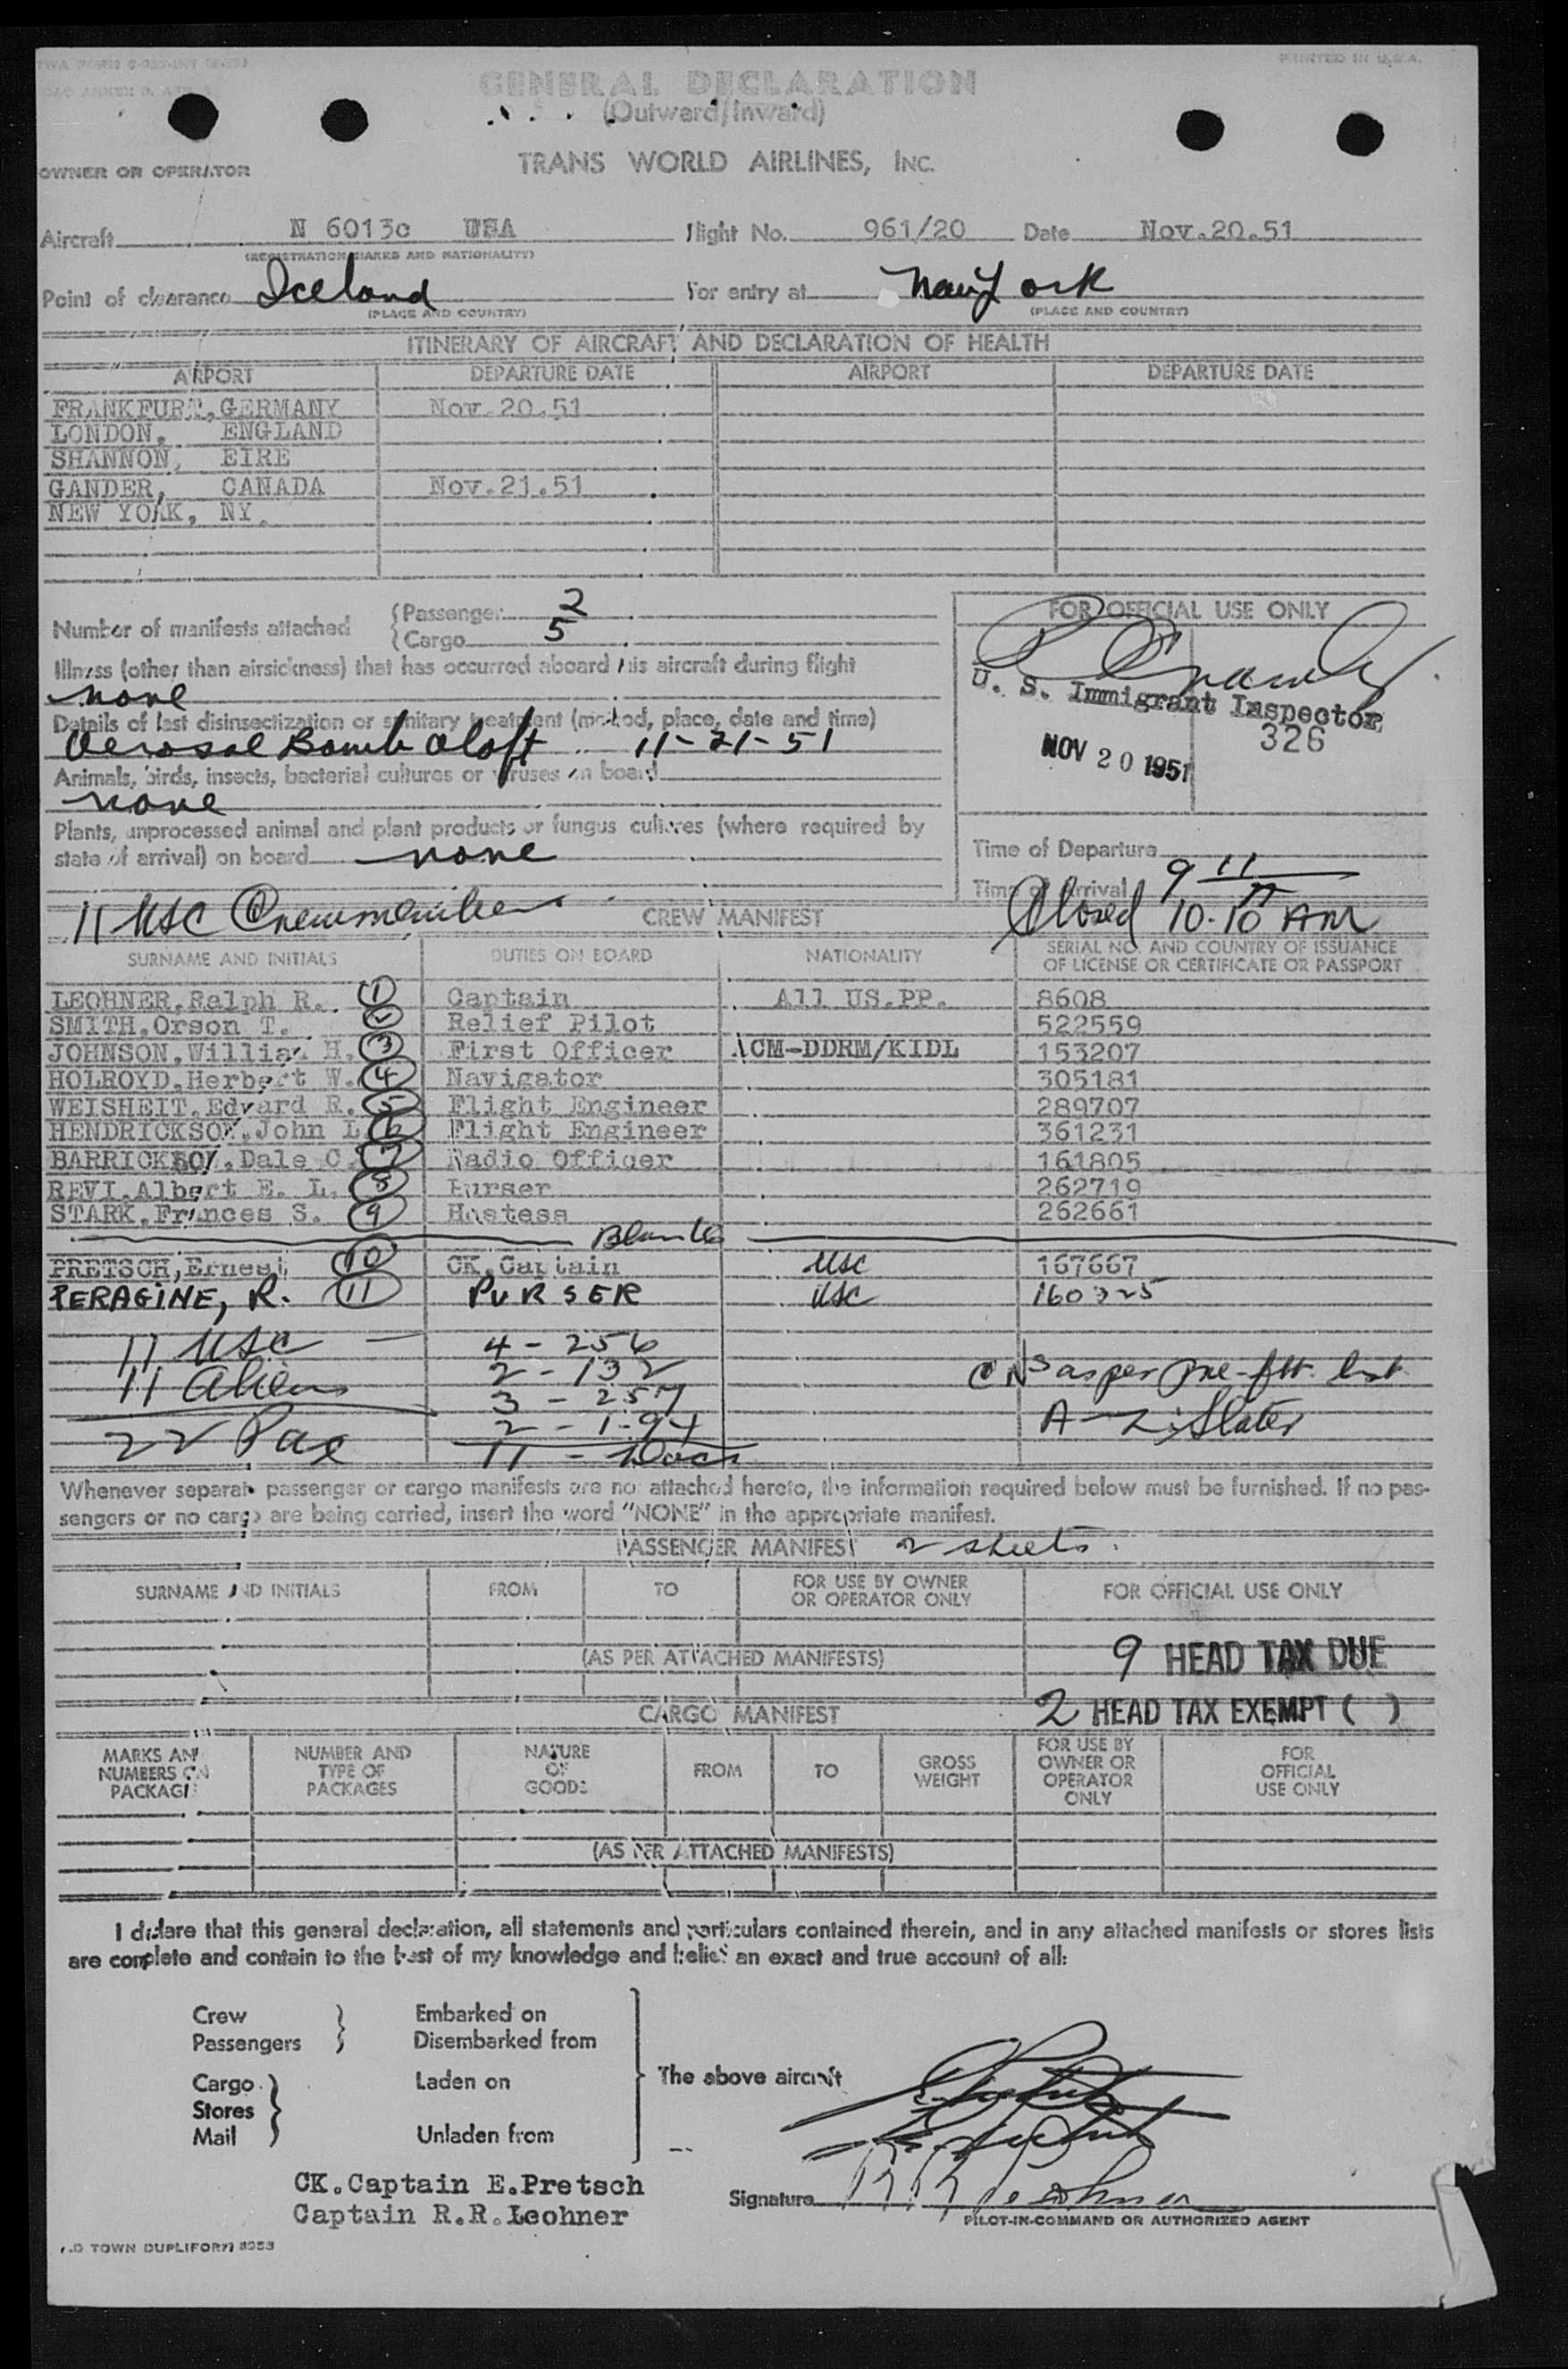 PRINTED IN U.S.A.
GENERAL DECLARATION
(Outward/Inward)
OWNER OR OPERATOR TRANS WORLD AIRLINES, INC.
Aircraft N 6013c USA Flight No. 961/20 Date Nov.20.51
(REGISTRATION MARKS AND NATIONALITY)
Point of clearance Iceland For entry at New York
(PLACE AND COUNTRY) (PLACE AND COUNTRY)
ITINERARY OF AIRCRAFT AND DECLARATION OF HEALTH
AIRPORT DEPARTURE DATE AIRPORT DEPARTURE DATE
FRANKFURT,GERMANY Nov.20.51
LONDON, ENGLAND
SHANNON, EIRE
GANDER, CANADA Nov.21.51
NEW YORK, NY.
Number of manifests attached (Passenger 2
(Cargo 5
Illness (other than airsickness) that has occurred aboard this aircraft during flight
none
Details of last disinsectization or sanitary treatment (method, place, date and time)
Aerosol Bomb aloft 11-21-51
Animals, birds, insects, bacterial cultures or viruses on board
none
Plants, unprocessed animal and plant products or fungus cultures (where required by
state of arrival) on board none
FOR OFFICIAL USE ONLY
U. S. Immigrant Inspector
326
NOV 20 1951
Time of Departure
Time of Arrival 9 11 A
Closed 10.10 AM
11 USC Crewmembers CREW MANIFEST
SURNAME AND INITIALS DUTIES ON BOARD NATIONALITY SERIAL NO. AND COUNTRY OF ISSUANCE
OF LICENSE OR CERTIFICATE OR PASSPORT
LEOHNER,Ralph R. 1 Captain All US.PP. 8608
SMITH,Orson T. 2 Relief Pilot 522559
JOHNSON,William H. 3 First Officer ACM-DDRM/KIDL 153207
HOLROYD,Herbert W. 4 Navigator 305181
WEISHEIT,Edward R. 5 Flight Engineer 289707
HENDRICKSON,John L 6 Flight Engineer 361231
BARRICKSON,Dale C. 7 Radio Officer 161805
REVI,Albert E. L. 8 Purser 262719
STARK,Frances S. 9 Hostess 262661
Blanks
PRETSCH,Ernest 10 CK.Captain USC 167667
PERAGINE, R. 11 PURSER USC 160325
11 USC 4 - 256
11 Aliens 2 - 132
3 - 257
22 Pax 2 - 1-94
11 - Docs
CNS as per pre-flt. list
A - Slater
Whenever separate passenger or cargo manifests are not attached hereto, the information required below must be furnished. If no pas-
sengers or no cargo are being carried, insert the word "NONE" in the appropriate manifest.
PASSENGER MANIFEST 2 sheets.
SURNAME AND INITIALS FROM TO FOR USE BY OWNER
OR OPERATOR ONLY FOR OFFICIAL USE ONLY
(AS PER ATTACHED MANIFESTS) 9 HEAD TAX DUE
CARGO MANIFEST 2 HEAD TAX EXEMPT ( )
MARKS AND
NUMBERS ON
PACKAGE NUMBER AND
TYPE OF
PACKAGES NATURE
OF
GOODS FROM TO GROSS
WEIGHT FOR USE BY
OWNER OR
OPERATOR
ONLY FOR
OFFICIAL
USE ONLY
(AS PER ATTACHED MANIFESTS)
I declare that this general declaration, all statements and particulars contained therein, and in any attached manifests or stores lists
are complete and contain to the best of my knowledge and belief an exact and true account of all:
Crew Embarked on
Passengers Disembarked from
Cargo Laden on The above aircraft
Stores
Mail Unladen from
CK.Captain E.Pretsch
Captain R.R.Leohner
Signature R R Leohner
PILOT-IN-COMMAND OR AUTHORIZED AGENT
TOWN DUPLIFORM